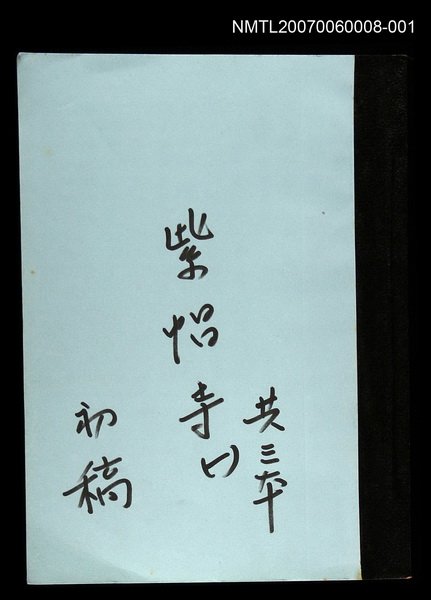 NMTL20070060008-001
共三本
紫帽寺(1)
初稿